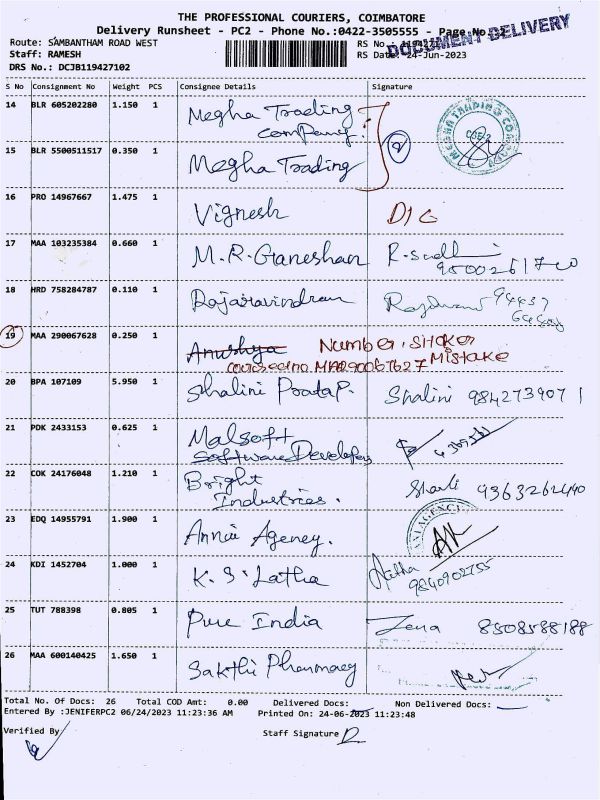 THE PROFESSIONAL COURIERS, COIMBATORE
Delivery Runsheet - PC2 - Phone No.:0422-3505555 - Page No.:
DOCUMENT DELIVERY
Route: SAMBANTHAM ROAD WEST
RS No.:
Staff: RAMESH
RS Date: 24-Jun-2023
DRS No.: DCJB119427102
S No Consignment No Weight PCS Consignee Details Signature
14 BLR 605202280 1.150 1 Megha Trading
Company.
2
MEGHA TRADING CO
15 BLR 5500511517 0.350 1 Megha Trading
16 PRO 14967667 1.475 1 Vignesh D/C
17 MAA 103235384 0.660 1 M.R.Ganeshan
18 HRD 758284787 0.110 1 Rajaravindran
94437
19 MAA 290067628 0.250 1 Anushya Number, sticker
Mistake
20 BPA 107109 5.950 1 Shalini Pratap. Shalini 9842739071
21 PDK 2433153 0.625 1 Malsoft
Software Developers
22 COK 24176048 1.210 1 Bright
Industries.
23 EDQ 14955791 1.900 1 Annai Agency.
24 KDI 1452704 1.000 1 K.S. Latha Latha
9840902755
25 TUT 788398 0.805 1 Pure India 8508588188
26 MAA 600140425 1.650 1 Sakthi Pharmacy
Total No. Of Docs: 26 Total COD Amt: 0.00 Delivered Docs: Non Delivered Docs:
Entered By :JENIFERPC2 06/24/2023 11:23:36 AM Printed On: 24-06-2023 11:23:48
Verified By Staff Signature